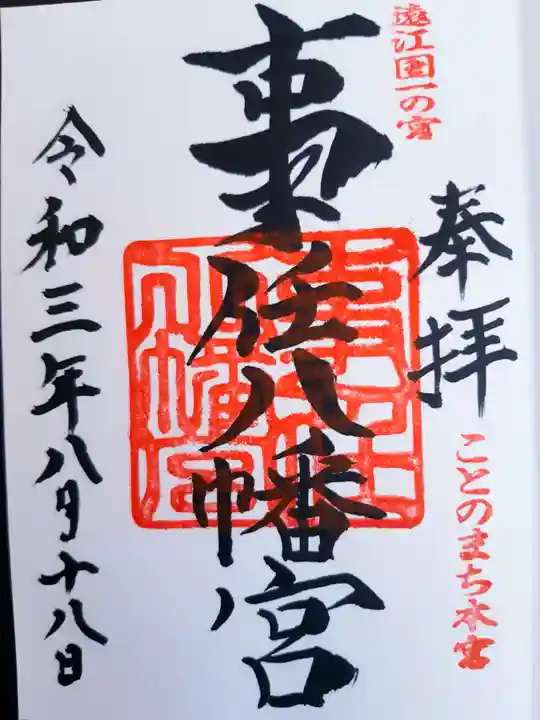 遠江国一の宮
奉拝
ことのまち本宮
事任八幡宮
令和三年八月十八日